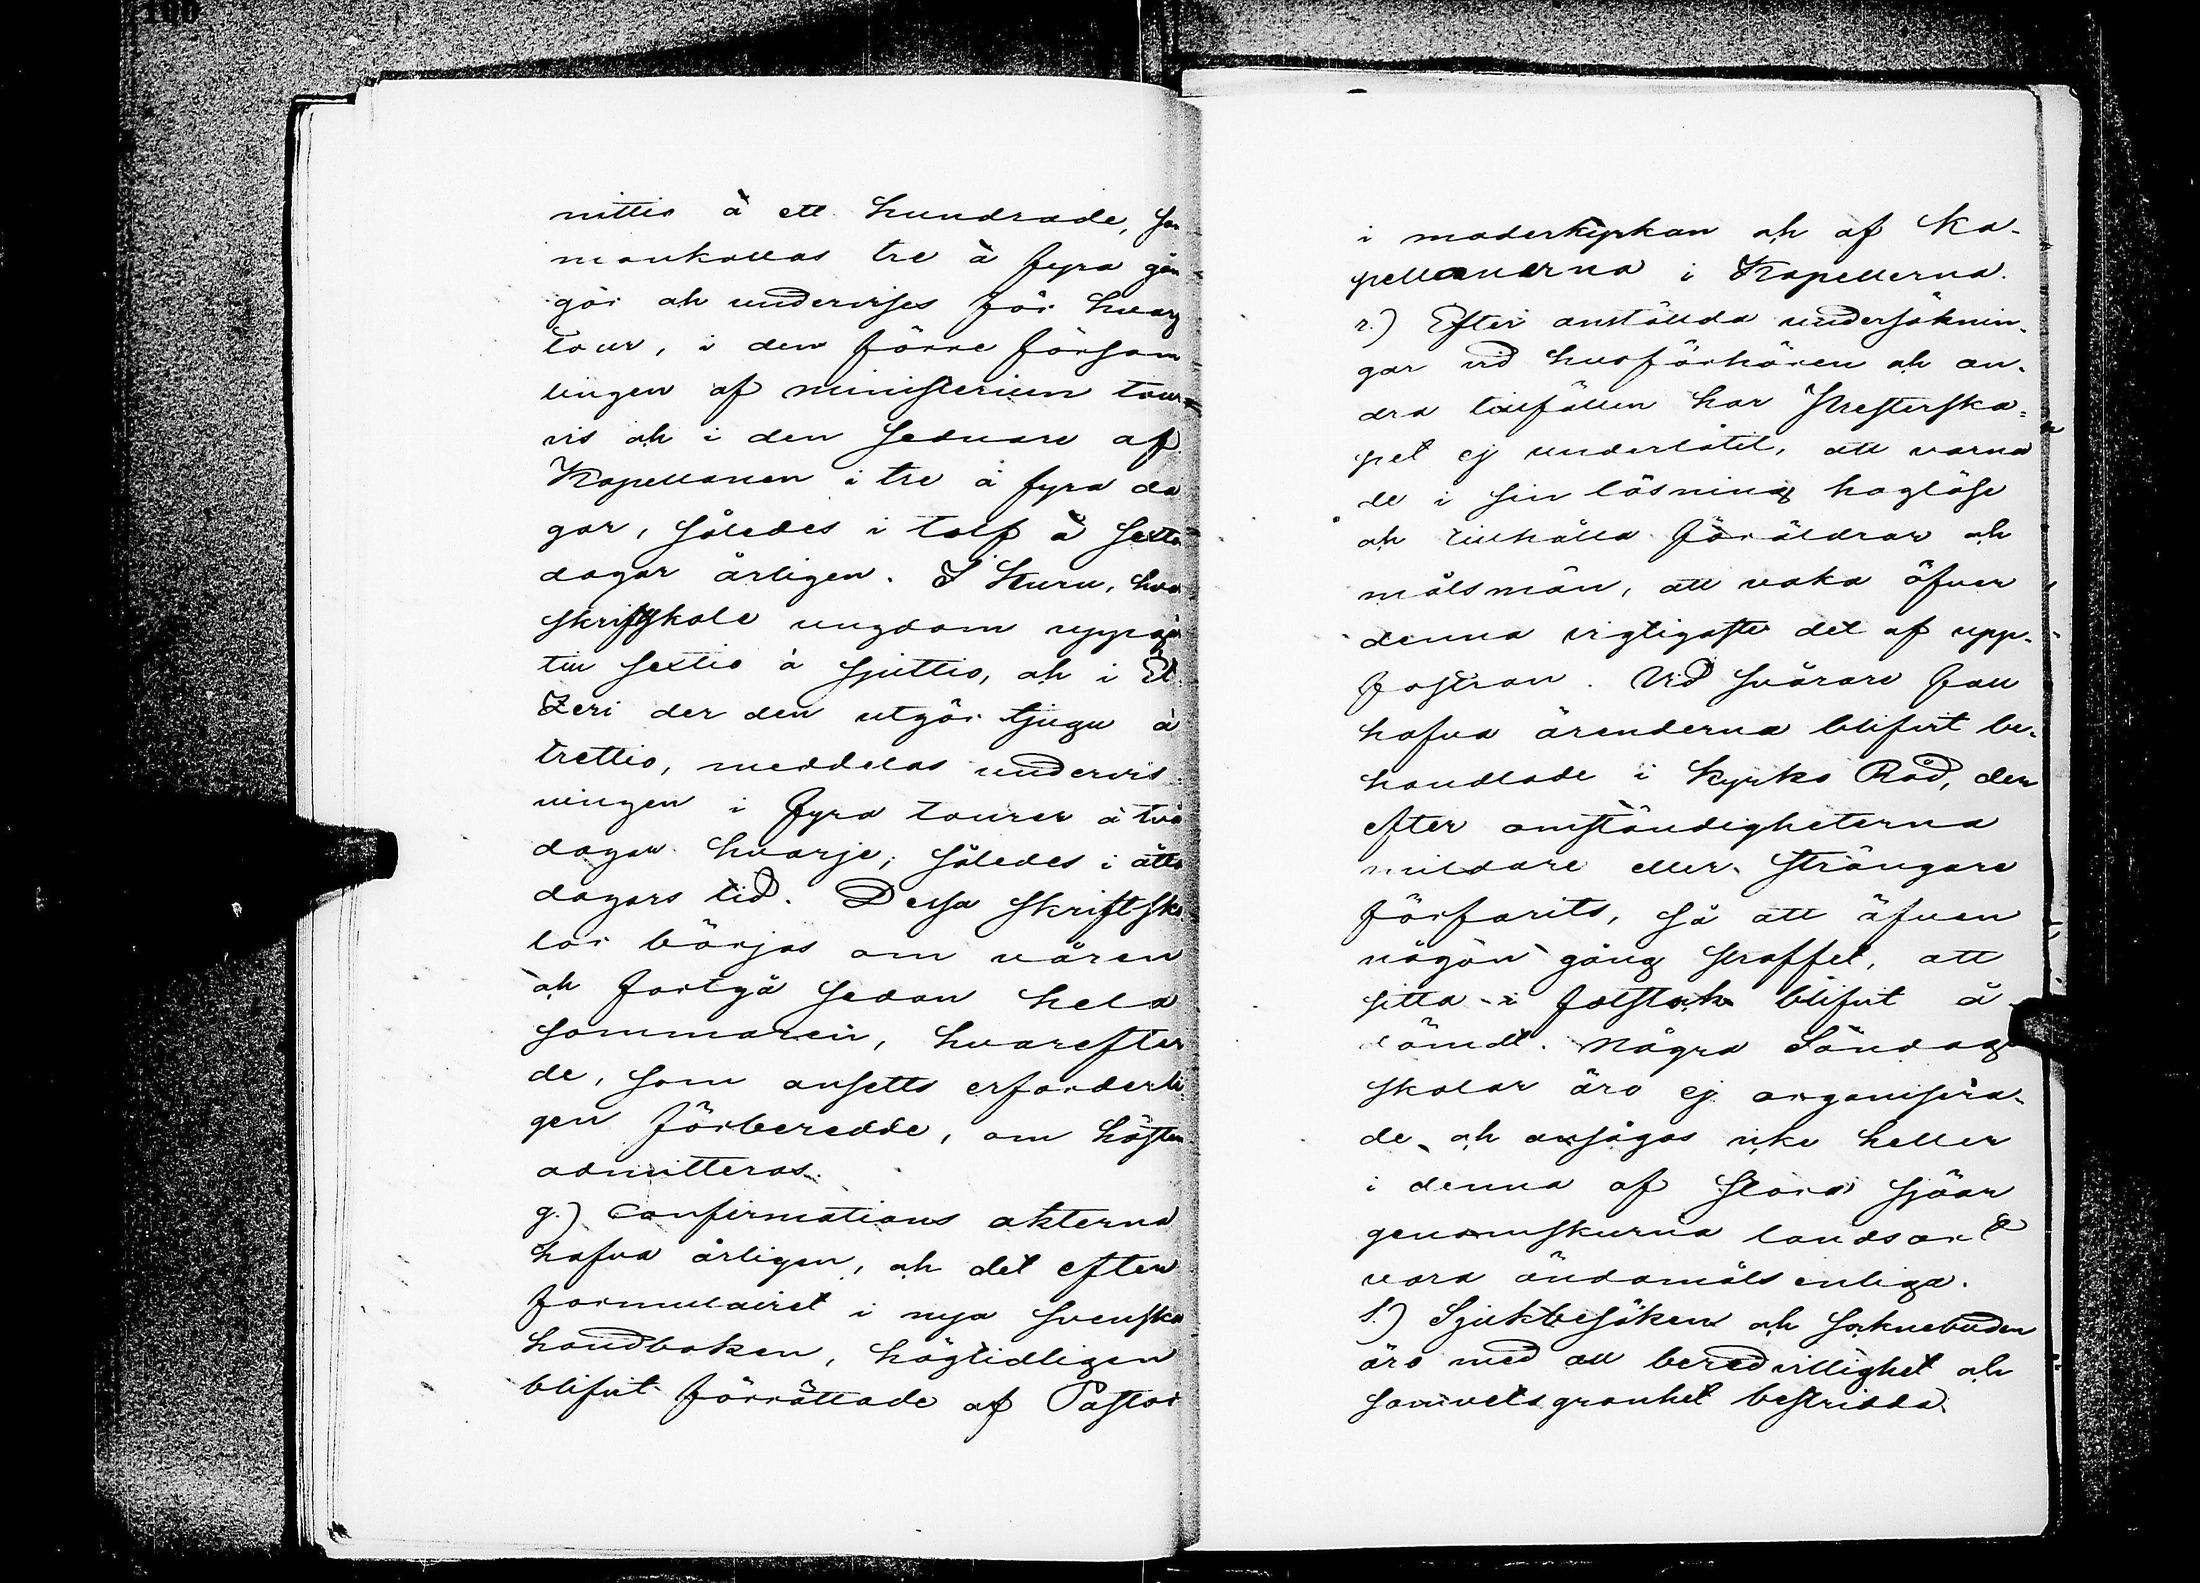 nittio à ett hundrade, sam
mankallas tre à fyra gån
gor och undervises för hvarj
tour, i den förre försam
lingen af ministerium tour
vis och i den sednare af
Kapellanen i tre à fyra da
gar, således i tolf à sexto
dagar årligen. I Kuru, hva
skriftskole ungdom uppgå
till sextio à sjuttio, och i Et
zeri der den utgör tjugu à
trettio, meddelas undervis
ningen i fyra tourer à två
dagar hvarje, således i åtta
dagars tid. Dessa skriftsko
lor börjas om våren
och fortgå sedan hela
sommaren, hvarefter
de, som ansetts erforderli
gen förberedde, om hösten
admitteras.
q.) Confirmations akterna
hafva årligen, och det efter
formulairet i nya svenska
handboken, högtidligen
blifvit förrättade af Pastor
i moderkyrkan och af Ka-
pellanerna i Kapellerna.
r.) Efter anställda undersöknin-
gar vid husförhören och an-
dra tillfällen har Presterska-
pet ej underlåtit, att varna
de i sin läsning håglöse
och tillhålla föräldrar och
målsmän, att vaka öfver
denna vigtigaste del af upp-
fostran. Vid svårare fall
hafva ärenderna blifvit be-
handlade i Kyrko Råd, der
efter omständigheterna
mildare eller strängare
förfarits, så att äfven
någon gång straffet, att
sitta i fotstock blifvit å
dömdt. Några Söndags
skolor äro ej organisera-
de, och ansågos icke heller
i denna af stora sjöar
genomskurna landsort
vara ändamåls enliga.
s.) Sjukbesöken och sockenbuden
äro med all beredvillighet och
samvetsgranhet bestridda.